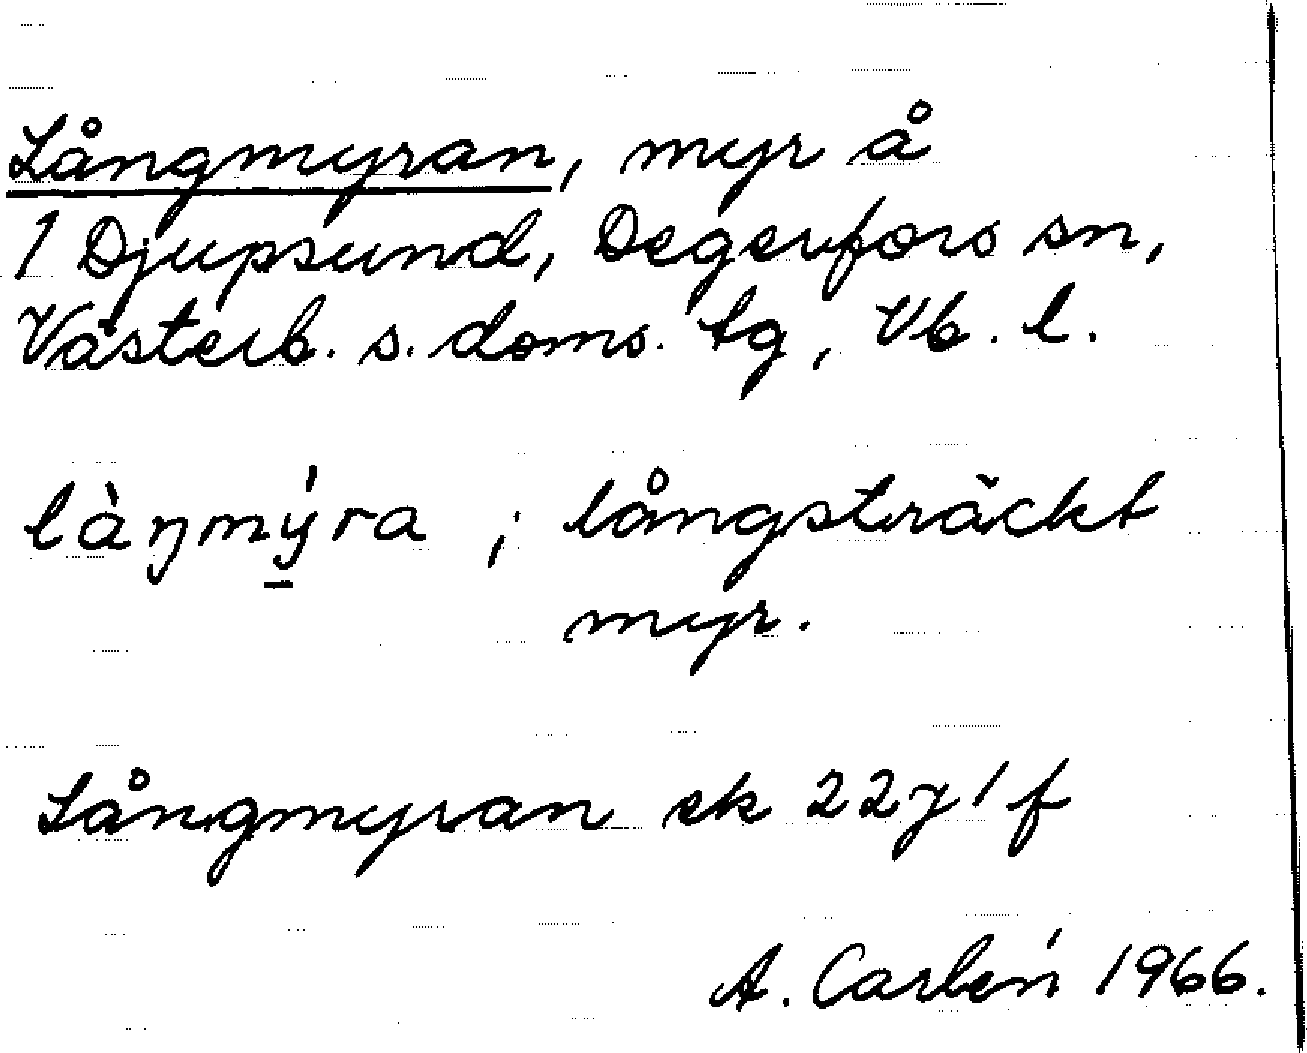 Långmyran, myr å
1 Djupsund, Degerfors sn,
Västerb. s. doms. tg, Vb. l.
là̀ŋmý̠ra ; långsträckt
myr.
Långmyran ek 22 j 1 f
A. Carlén 1966.